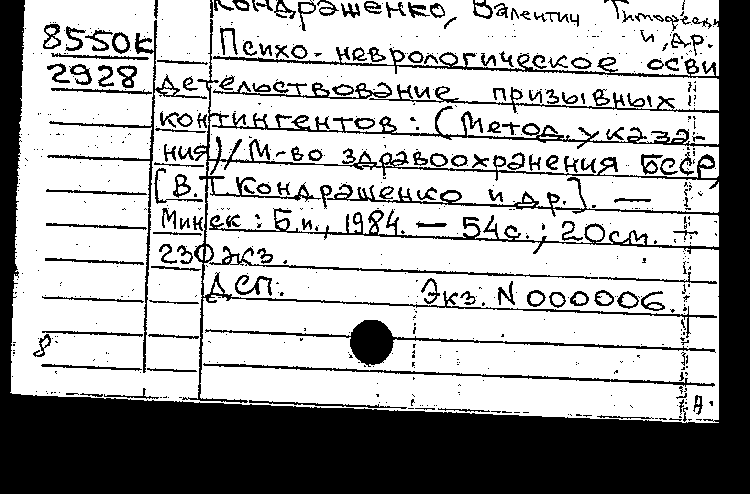 Кондрашенко, Валентин Тимофеевич
и др.
8550к Психо-неврологическое осви
2928 детельствование призывных
контингентов: (Метод. указа-
ния)/М-во здравоохранения БССР,
[В.Т Кондрашенко и др.]. —
Минск: Б.и., 1984. — 54с.; 20см. —
230 экз.
ДСП. Экз. N 000006.
8